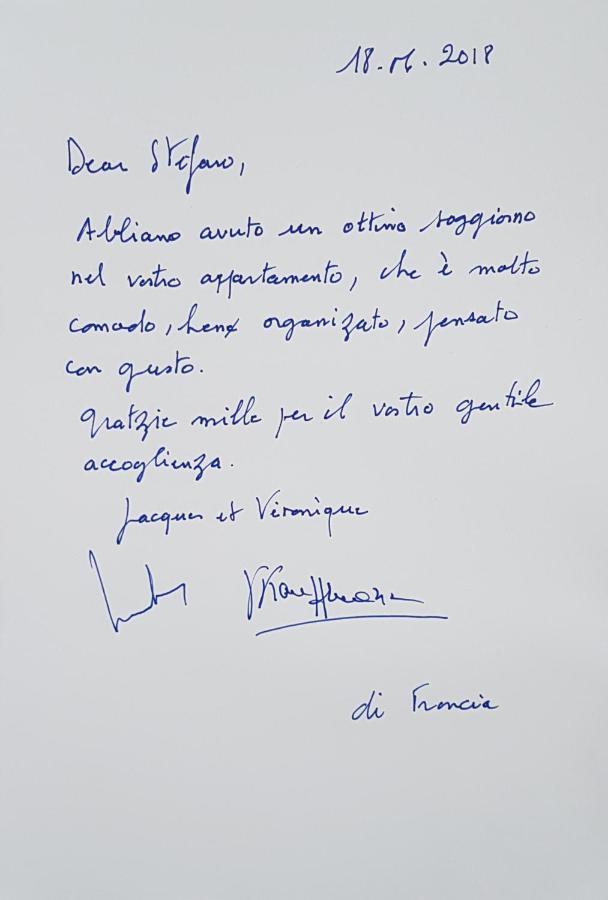 18.06.2018
Dear Stefano,
Abbiamo avuto un ottimo soggiorno
nel vostro appartamento, che è molto
comodo, bene organizato, pensato
con gusto.
Gratzie mille per il vostro gentile
accoglienza.
Jacques et Véronique
VKauffmann
di Francia